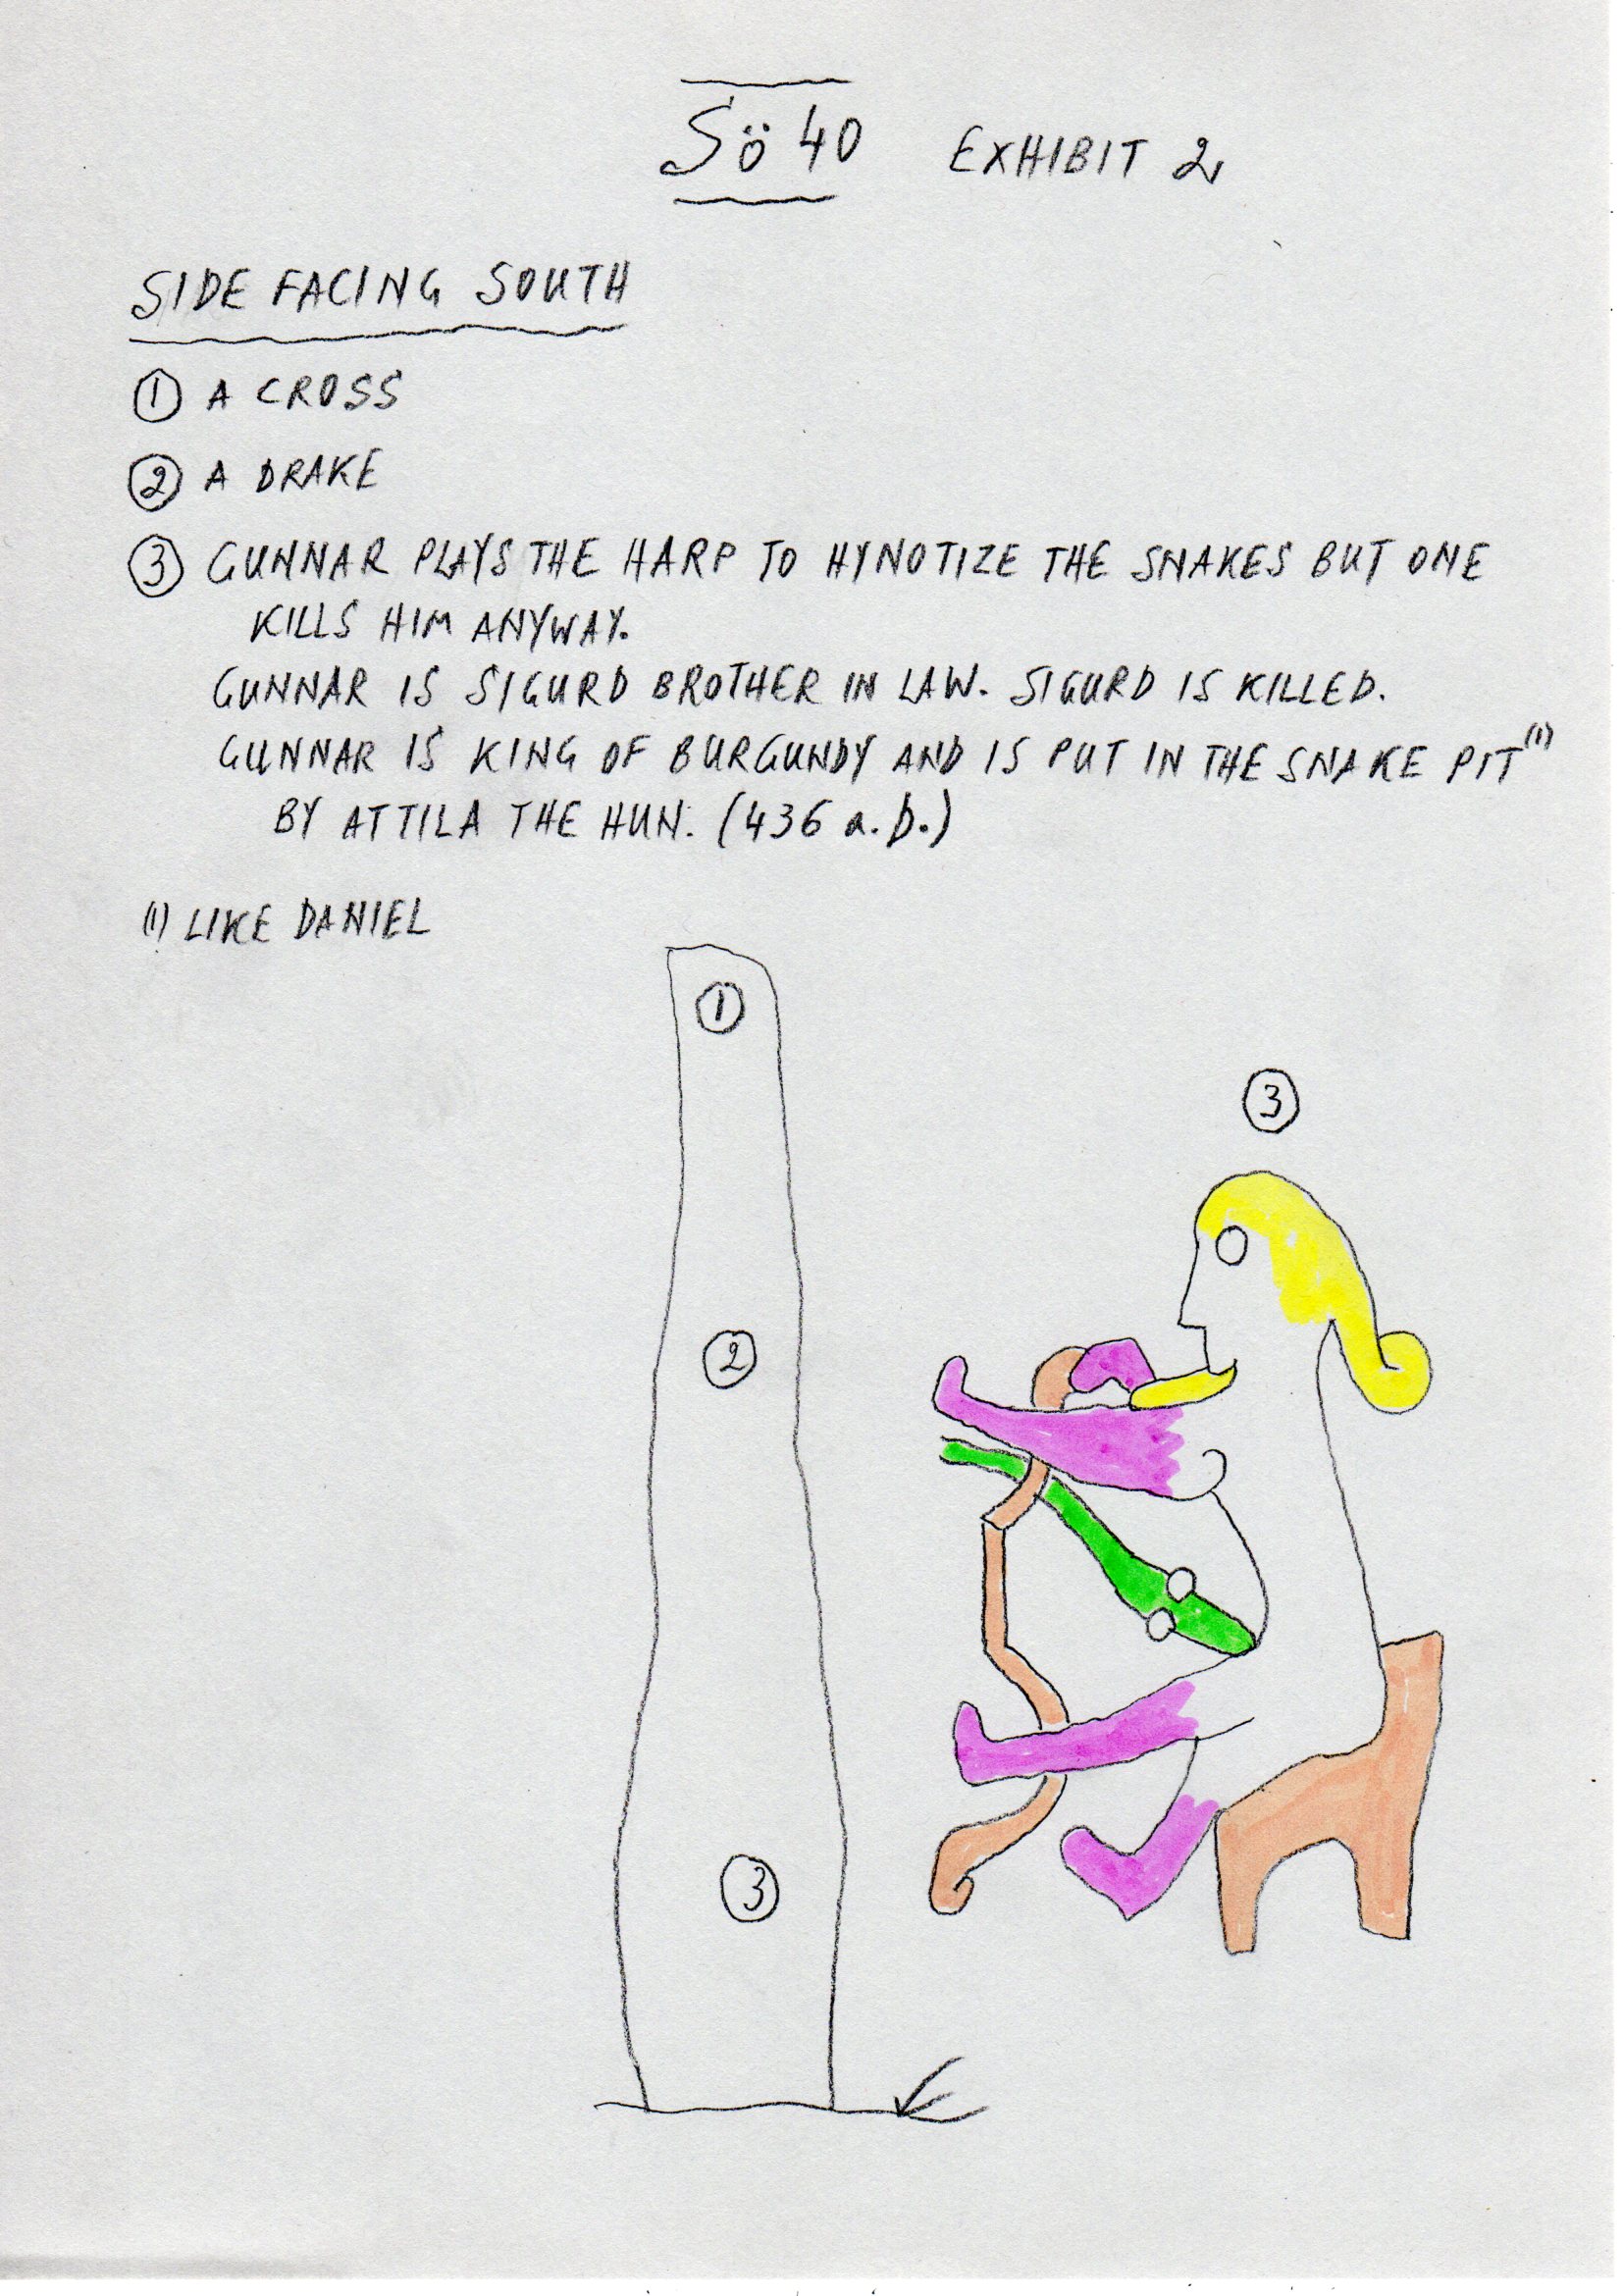 Sö 40 EXHIBIT 2,
SIDE FACING SOUTH
① A CROSS
② A DRAKE
③ GUNNAR PLAYS THE HARP TO HYNOTIZE THE SNAKES BUT ONE
KILLS HIM ANYWAY.
GUNNAR IS SIGURD BROTHER IN LAW. SIGURD IS KILLED.
GUNNAR IS KING OF BURGUNDY AND IS PUT IN THE SNAKE PIT (1)
BY ATTILA THE HUN. (436 a.D.)
(1) LIKE DANIEL
①
③
②
③